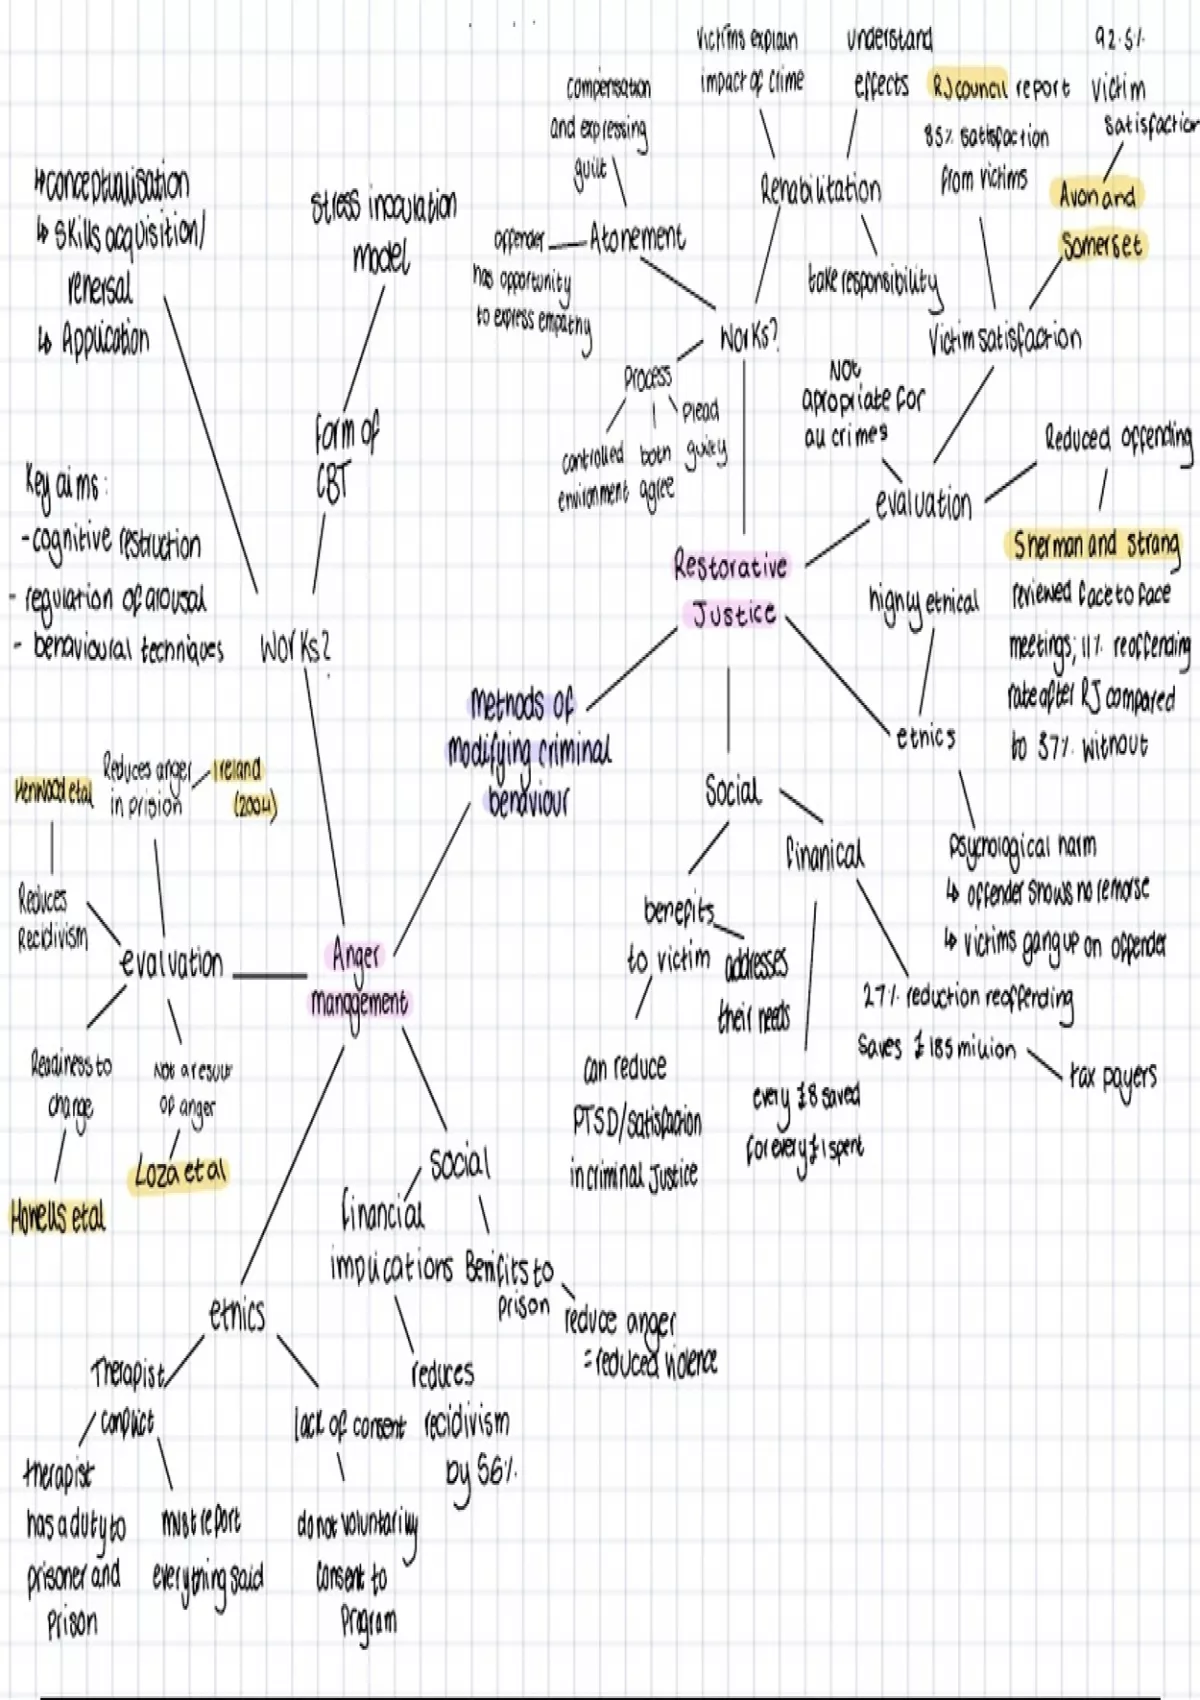 Victims explain
impact of crime
understand
effects
92.5%
victim
satisfaction
RJ council report
85% satisfaction
from victims
Avon and
Somerset
compensation
and expressing
guilt
Rehabilitation
offender
Atonement
has opportunity
to express empathy
take responsibility
Works?
Victim satisfaction
Process
controlled
environment
both
agree
plead
guilty
Not
apropriate for
all crimes
Reduced offending
evaluation
Sherman and Strang
reviewed face to face
meetings; 11% reoffending
rate after RJ compared
to 37% without
Restorative
Justice
highly ethical
ethics
psychological harm
↳ offender shows no remorse
↳ victims gang up on offender
Social
finanical
benefits
to victim
addresses
their needs
can reduce
PTSD/satisfaction
in criminal Justice
every £8 saved
for every £1 spent
27% reduction reoffending
saves £185 million
tax payers
Methods of
modifying criminal
behaviour
↳ conceptualisation
↳ skills acquisition/
rehersal
↳ Application
stress inoculation
model
form of
CBT
Key aims:
- cognitive restruction
- regulation of arousal
- behavioural techniques
Works?
Reduces anger
in prision
Ireland
(2004)
Reduces
Recidivism
evaluation
Anger
management
Readiness to
change
Howells et al
Not a result
of anger
Loza et al
social
financial
implications
Benifits to
prison
reduce anger
= reduced violence
reduces
recidivism
by 56%
ethics
Therapist
conflict
therapist
has a duty to
prisoner and
prison
must report
everything said
lack of consent
do not voluntarily
consent to
Program